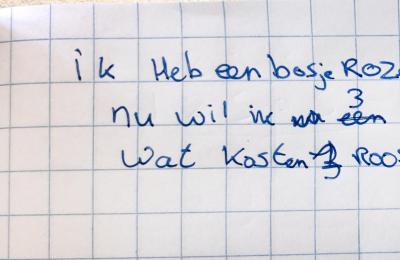 ik Heb een bosje ROZ
nu wil ik 3
wat kosten 3 ROO